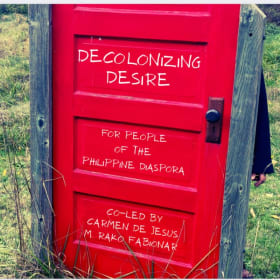 DECOLONIZING
DESIRE
FOR PEOPLE
OF THE
PHILIPPINE DIASPORA
CO-LED BY
CARMEN DE JESUS
M. RAKO FABIONAR